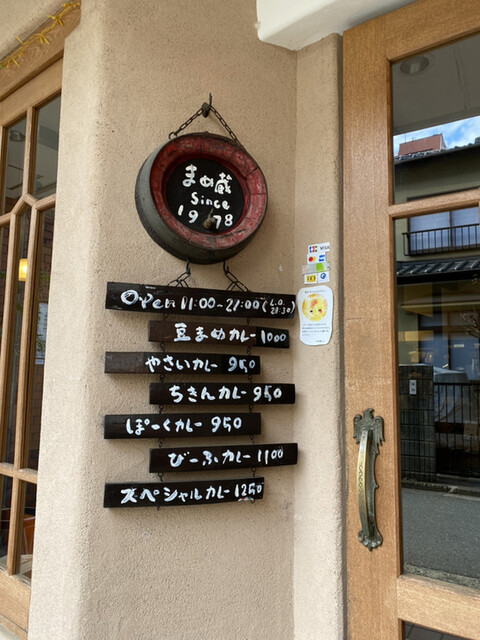 まめ蔵
Since
1978
Open 11:00~21:00 (L.O. 20:30)
豆まめカレー 1000
やさいカレー 950
ちきんカレー 950
ぽーくカレー 950
びーふカレー 1100
スペシャルカレー 1250
VISA